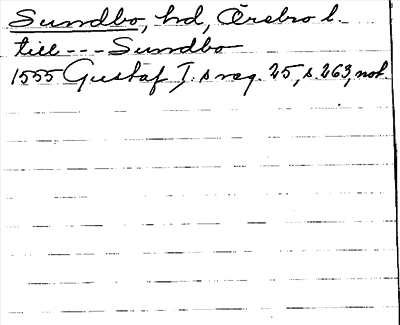 Sundbo, hd, Örebro l.
till --- Sundbo
1555 Gustaf I.s reg. 25, s. 263, not.